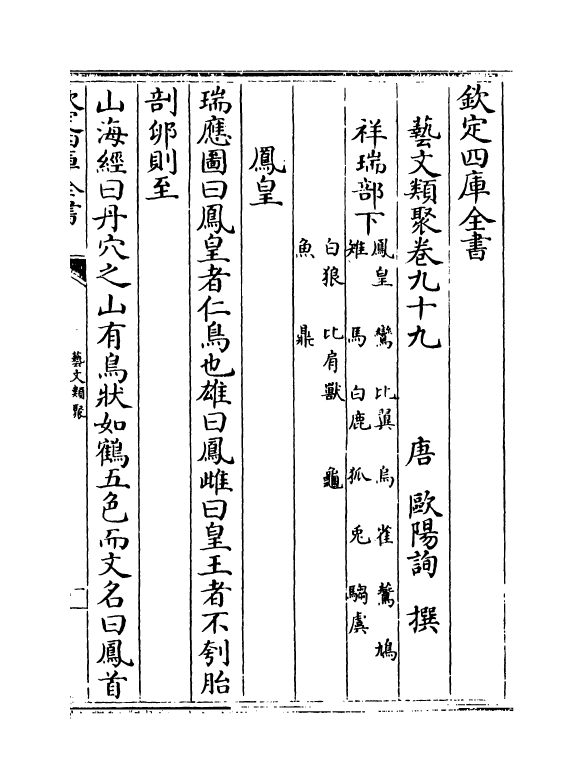 欽定四庫全書
藝文類聚卷九十九
唐 歐陽詢 撰
祥瑞部下
鳳皇 鸞 比翼 烏 雀 鷰 鳩
雉 馬 白鹿 狐 兎 騶虞
白狼 比肩獸 龜
魚 鼎
鳳皇
瑞應圖曰鳳皇者仁鳥也雄曰鳳雌曰皇王者不刳胎
剖卵則至
山海經曰丹穴之山有鳥狀如鶴五色而文名曰鳳首
欽定四庫全書
藝文類聚